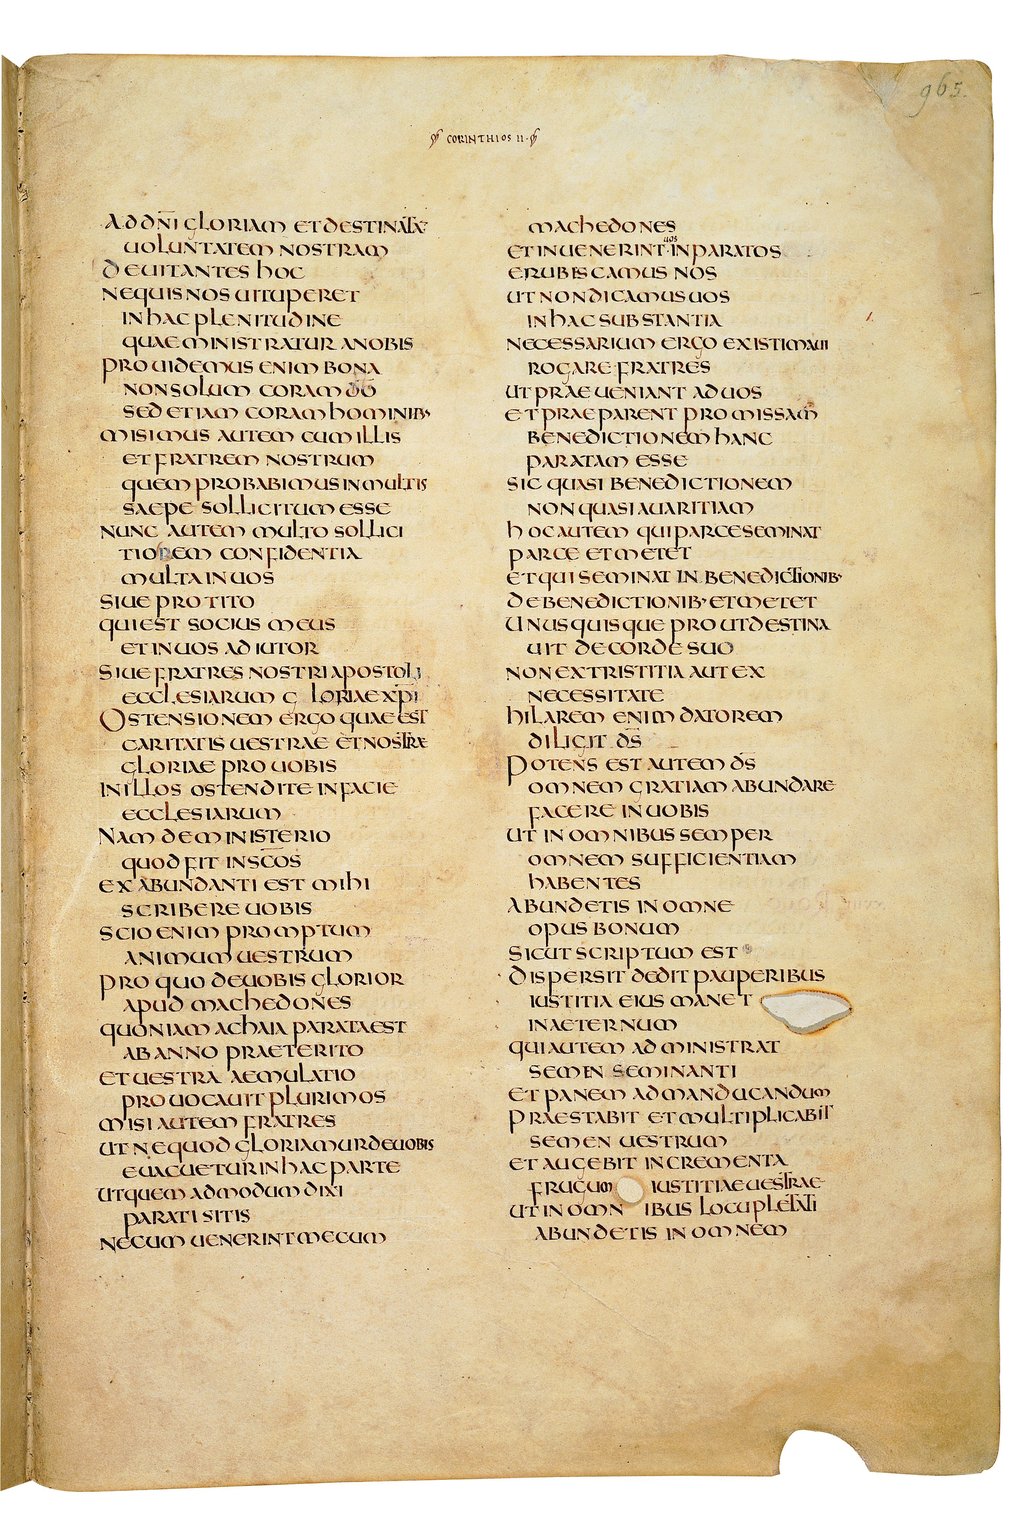 965.
CORINTHIOS II
AD DÑI GLORIAM ET DESTINATĀ
UOLUNTATEM NOSTRAM
DEUITANTES hOC
NEQUIS NOS UITUPERET
IN hAC PLENITUDINE
QUAE MINISTRATUR A NOBIS
PROUIDEMUS ENIM BONA
NON SOLUM CORAM DŌ
SED ETIAM CORAM hOMINIB·
MISIMUS AUTEM CUM ILLIS
ET FRATREM NOSTRUM
QUEM PROBABIMUS IN MULTIS
SAEPE SOLLICITUM ESSE
NUNC AUTEM MULTO SOLLICI
TIOREM CONFIDENTIA
MULTA IN UOS
SIUE PRO TITO
QUI EST SOCIUS MEUS
ET IN UOS ADIUTOR
SIUE FRATRES NOSTRI APOSTOLI
ECCLESIARUM GLORIAE XP̄I
OSTENSIONEM ERGO QUAE EST
CARITATIS UESTRAE ET NOSTRAE
GLORIAE PRO UOBIS
IN ILLOS OSTENDITE IN FACIE
ECCLESIARUM
NAM DE MINISTERIO
QUOD FIT IN SC̄OS
EX ABUNDANTI EST MIhI
SCRIBERE UOBIS
SCIO ENIM PROMPTUM
ANIMUM UESTRUM
PRO QUO DE UOBIS GLORIOR
APUD MAChEDONES
QUONIAM AChAIA PARATA EST
AB ANNO PRAETERITO
ET UESTRA AEMULATIO
PROUOCAUIT PLURIMOS
MISI AUTEM FRATRES
UT NE QUOD GLORIAMUR DE UOBIS
EUACUETUR IN hAC PARTE
UT QUEM AD MODUM DIXI
PARATI SITIS
NE CUM UENERINT MECUM
MAChEDONES
ET INUENERINT UOS INPARATOS
ERUBISCAMUS NOS
UT NON DICAMUS UOS
IN hAC SUBSTANTIA
NECESSARIUM ERGO EXISTIMAUI
ROGARE FRATRES
UT PRAEUENIANT AD UOS
ET PRAEPARENT PROMISSAM
BENEDICTIONEM hANC
PARATAM ESSE
SIC QUASI BENEDICTIONEM
NON QUASI AUARITIAM
hOC AUTEM QUI PARCE SEMINAT
PARCE ET METET
ET QUI SEMINAT IN BENEDICTIONIB·
DE BENEDICTIONIB· ET METET
UNUSQUISQUE PROUT DESTINA
UIT DE CORDE SUO
NON EX TRISTITIA AUT EX
NECESSITATE
hILAREM ENIM DATOREM
DILIGIT D̄S
POTENS EST AUTEM D̄S
OMNEM GRATIAM ABUNDARE
FACERE IN UOBIS
UT IN OMNIBUS SEMPER
OMNEM SUFFICIENTIAM
hABENTES
ABUNDETIS IN OMNE
OPUS BONUM
SICUT SCRIPTUM EST
DISPERSIT DEDIT PAUPERIBUS
IUSTITIA EIUS MANET
IN AETERNUM
QUI AUTEM ADMINISTRAT
SEMEN SEMINANTI
ET PANEM AD MANDUCANDUM
PRAESTABIT ET MULTIPLICABIT
SEMEN UESTRUM
ET AUGEBIT INCREMENTA
FRUGUM IUSTITIAE UESTRAE
UT IN OMNIBUS LOCUPLETATI
ABUNDETIS IN OMNEM